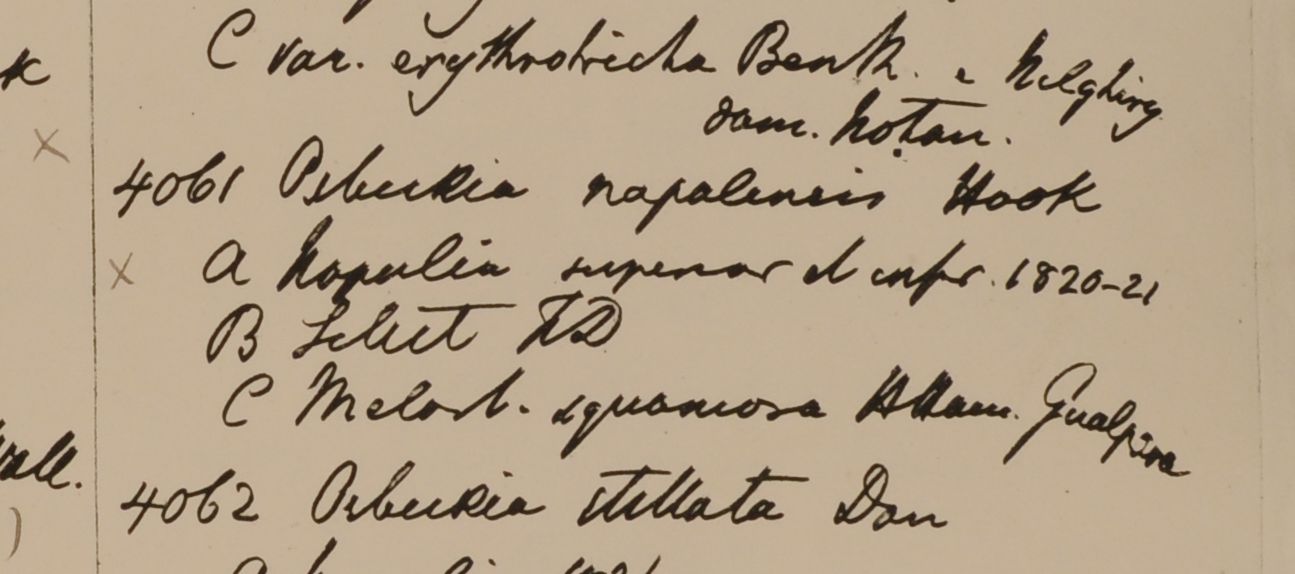 k
C var. erythrotricha Benth. e Nilghiry
dom. Noton.
4061 Osbeckia napalensis Hook
A Napalia superior et infr. 1820-21
B Silhet FD
C Melast. squamosa HHam. Gualpara
Wall.
4062 Osbeckia stellata Don
)